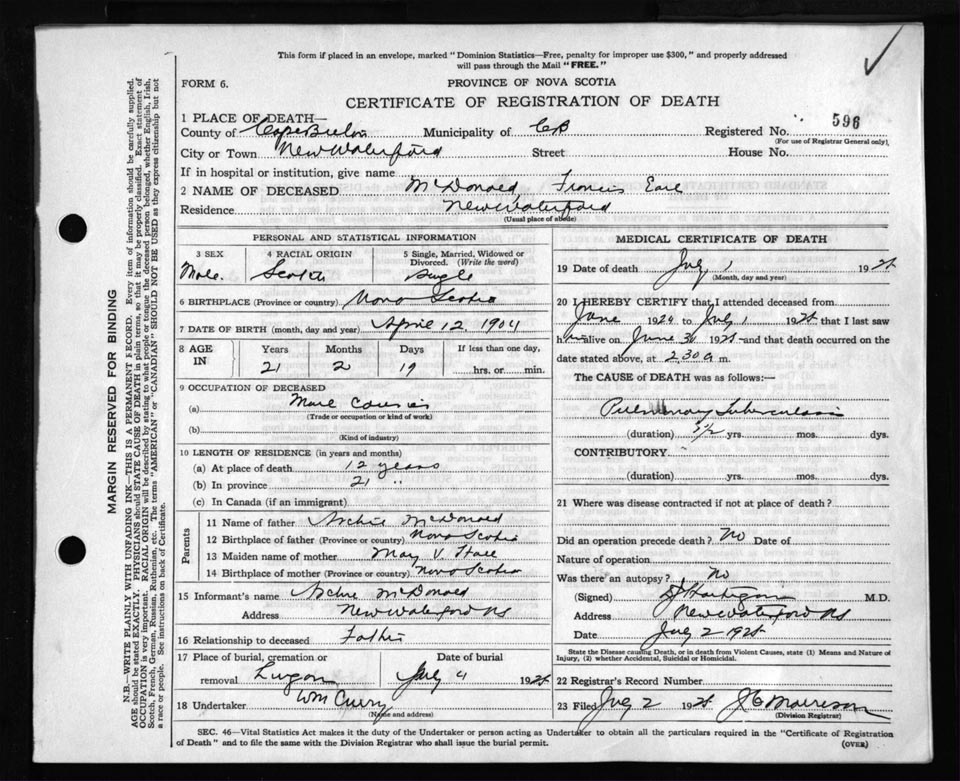 This form if placed in an envelope, marked "Dominion Statistics—Free, penalty for improper use $300," and properly addressed
will pass through the Mail "FREE."
FORM 6.
PROVINCE OF NOVA SCOTIA
CERTIFICATE OF REGISTRATION OF DEATH
1 PLACE OF DEATH—
County of Cape Breton Municipality of CB Registered No. 596
(For use of Registrar General only)
City or Town New Waterford Street House No.
If in hospital or institution, give name
2 NAME OF DECEASED McDonald, Francis Earl
Residence New Waterford
(Usual place of abode)
PERSONAL AND STATISTICAL INFORMATION
3 SEX 4 RACIAL ORIGIN 5 Single, Married, Widowed or Divorced. (Write the word)
Male. Scotch Single
6 BIRTHPLACE (Province or country) Nova Scotia
7 DATE OF BIRTH (month, day and year) April 12, 1904
8 AGE IN Years Months Days If less than one day,
21 2 19 hrs. or min.
9 OCCUPATION OF DECEASED
(a) Mail Courier
(Trade or occupation or kind of work)
(b)
(Kind of industry)
10 LENGTH OF RESIDENCE (in years and months)
(a) At place of death 12 years
(b) In province 21 "
(c) In Canada (if an immigrant)
Parents
11 Name of father Archie McDonald
12 Birthplace of father (Province or country) Nova Scotia
13 Maiden name of mother May V. Hall
14 Birthplace of mother (Province or country) Nova Scotia
15 Informant's name Archie McDonald
Address New Waterford NS
16 Relationship to deceased Father
17 Place of burial, cremation or removal Date of burial
Lingan July 4 1925
18 Undertaker Wm Curry
(Name and address)
MEDICAL CERTIFICATE OF DEATH
19 Date of death July 1 1925
(Month, day and year)
20 I HEREBY CERTIFY that I attended deceased from
June 1920 to July 1 1925 that I last saw
him alive on June 30 1925 and that death occurred on the
date stated above, at 2.30 a m.
The CAUSE of DEATH was as follows:—
Pulmonary Tuberculosis
(duration) 5½ yrs. mos. dys.
CONTRIBUTORY
(duration) yrs. mos. dys.
21 Where was disease contracted if not at place of death?
Did an operation precede death? No Date of
Nature of operation
Was there an autopsy? No
(Signed) M.D.
Address New Waterford NS
Date July 2 1925
State the Disease causing Death, or in death from Violent Causes, state (1) Means and Nature of
Injury, (2) whether Accidental, Suicidal or Homicidal.
22 Registrar's Record Number
23 Filed July 2 1925 J C Morrison
(Division Registrar)
SEC. 46—Vital Statistics Act makes it the duty of the Undertaker or person acting as Undertaker to obtain all the particulars required in the "Certificate of Registration
of Death" and to file the same with the Division Registrar who shall issue the burial permit.
(OVER)
MARGIN RESERVED FOR BINDING
N.B.—WRITE PLAINLY WITH UNFADING INK—THIS IS A PERMANENT RECORD. Every item of information should be carefully supplied.
AGE should be stated EXACTLY. PHYSICIANS should STATE CAUSE OF DEATH in plain terms, so that it may be properly classified. Exact statement of
OCCUPATION is very important. RACIAL ORIGIN will be described by stating to what people or tongue the deceased person belonged, whether English, Irish,
Scotch, French, German, Russian, Ruthenian, etc. The terms "AMERICAN" or "CANADIAN" SHOULD NOT BE USED as they express citizenship but not
a race or people. See instructions on back of Certificate.